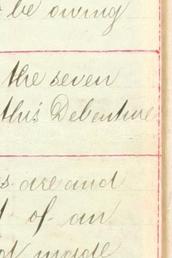 be owing
the seven
this Debenture
s are and
of an
made